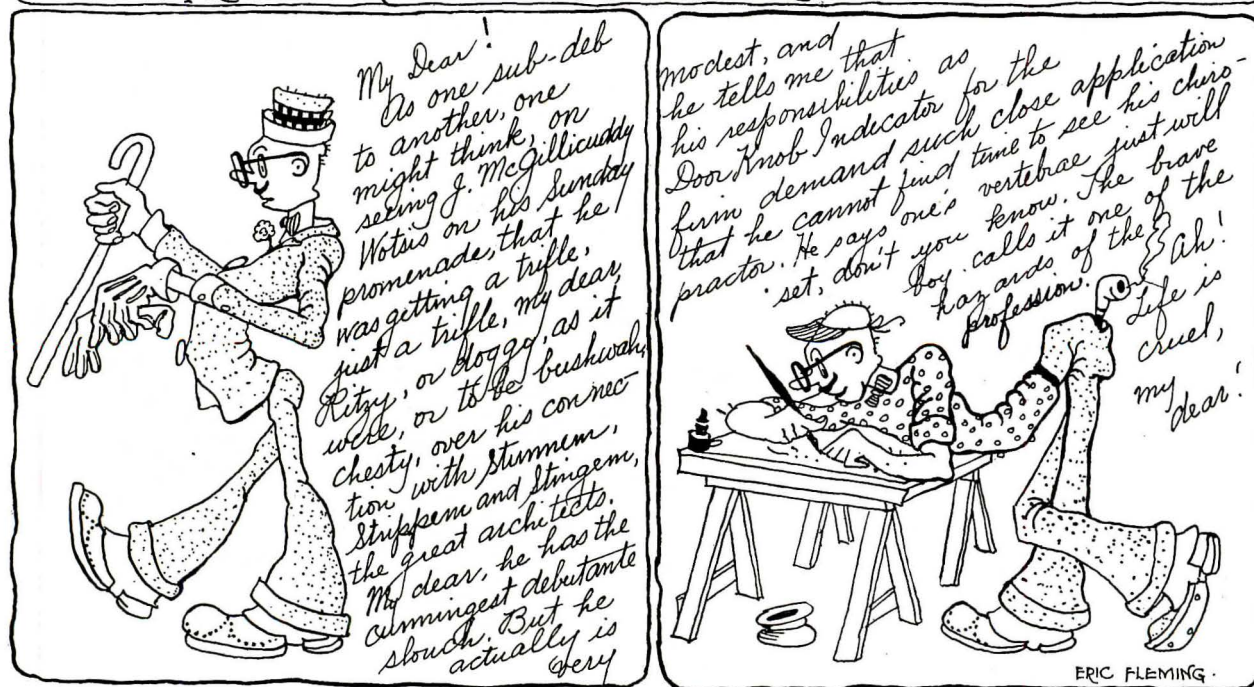 My Dear!
As one sub-deb
to another, one
might think, on
seeing J. McGillicuddy
Wotsis on his Sunday
promenade, that he
was getting a trifle,
just a trifle, my dear,
Ritzy, or doggy, as it
were, or to be bushwah,
chesty, over his connec-
tion with Stunnem,
Strippem and Stingem,
the great architects.
My dear, he has the
cunningest debutante
slouch. But he
actually is
very
modest, and
he tells me that
his responsibilities as
Door Knob Indicator for the
firm demand such close application
that he cannot find time to see his chiro-
practor. He says one's vertebrae just will
set, don't you know. The brave
boy calls it one of the
hazards of the
profession.
Ah!
Life is
cruel,
my
dear!
ERIC FLEMING.